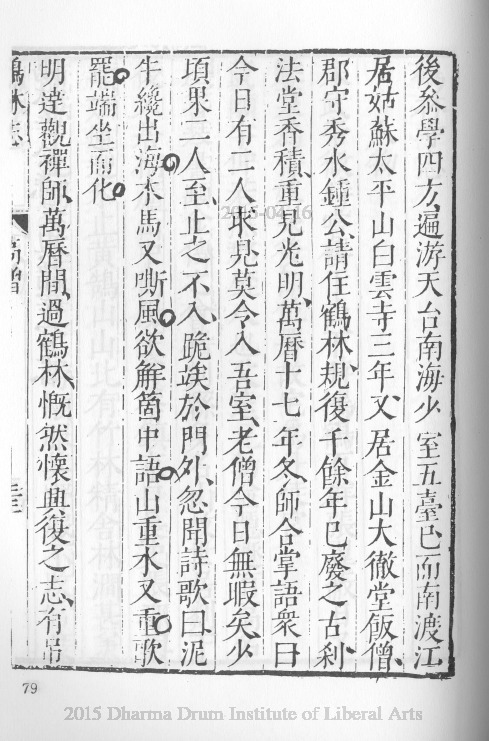 後叅學四方、遍游天台南海少室五臺、已而南渡江
居姑蘇太平山白雲寺三年、又居金山大徹堂飯僧、
郡守秀水鍾公、請住鶴林、規復千餘年已廢之古刹、
法堂香積、重見光明、萬曆十七年冬、師合掌語衆曰
今日有二人來見、莫令入吾室、老僧今日無暇矣、少
頃果二人至、止之不入、跪竢於門外、忽聞詩歌曰、泥
牛纔出海。木馬又嘶風。欲解箇中語。山重水又重。歌
罷。端坐而化。
明達觀禪師、萬曆間、過鶴林、慨然懷興復之志、有弔
鶴林志 高僧
79
2015-04-16
2015 Dharma Drum Institute of Liberal Arts